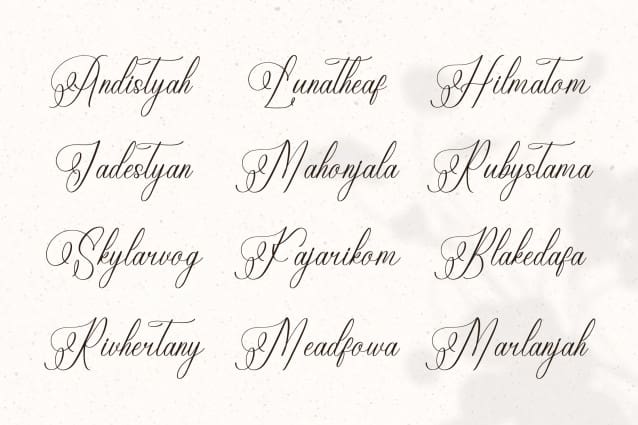 Andistyah Lunatheaf Hilmatom
Jadestyan Mahonjala Rubystama
Skylarvog Kajarikom Blakedafa
Rivhertany Meadfowa Marlanjah